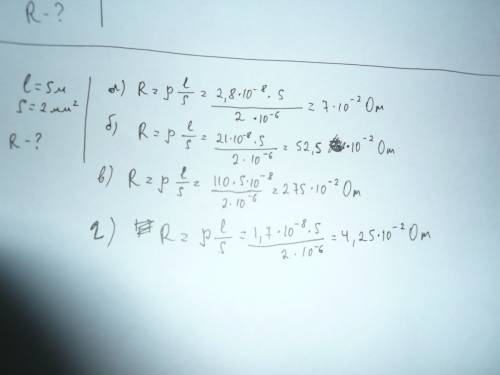 R - ?
l = 5м
S = 2мм²
R - ?
а) R = ρ l/S = 2,8·10⁻⁸·5 / 2·10⁻⁶ = 7·10⁻² Ом
б) R = ρ l/S = 21·10⁻⁸·5 / 2·10⁻⁶ = 52,5·10⁻² Ом
в) R = ρ l/S = 110·5·10⁻⁸ / 2·10⁻⁶ = 275·10⁻² Ом
г) R = ρ l/S = 1,7·10⁻⁸·5 / 2·10⁻⁶ = 4,25·10⁻² Ом